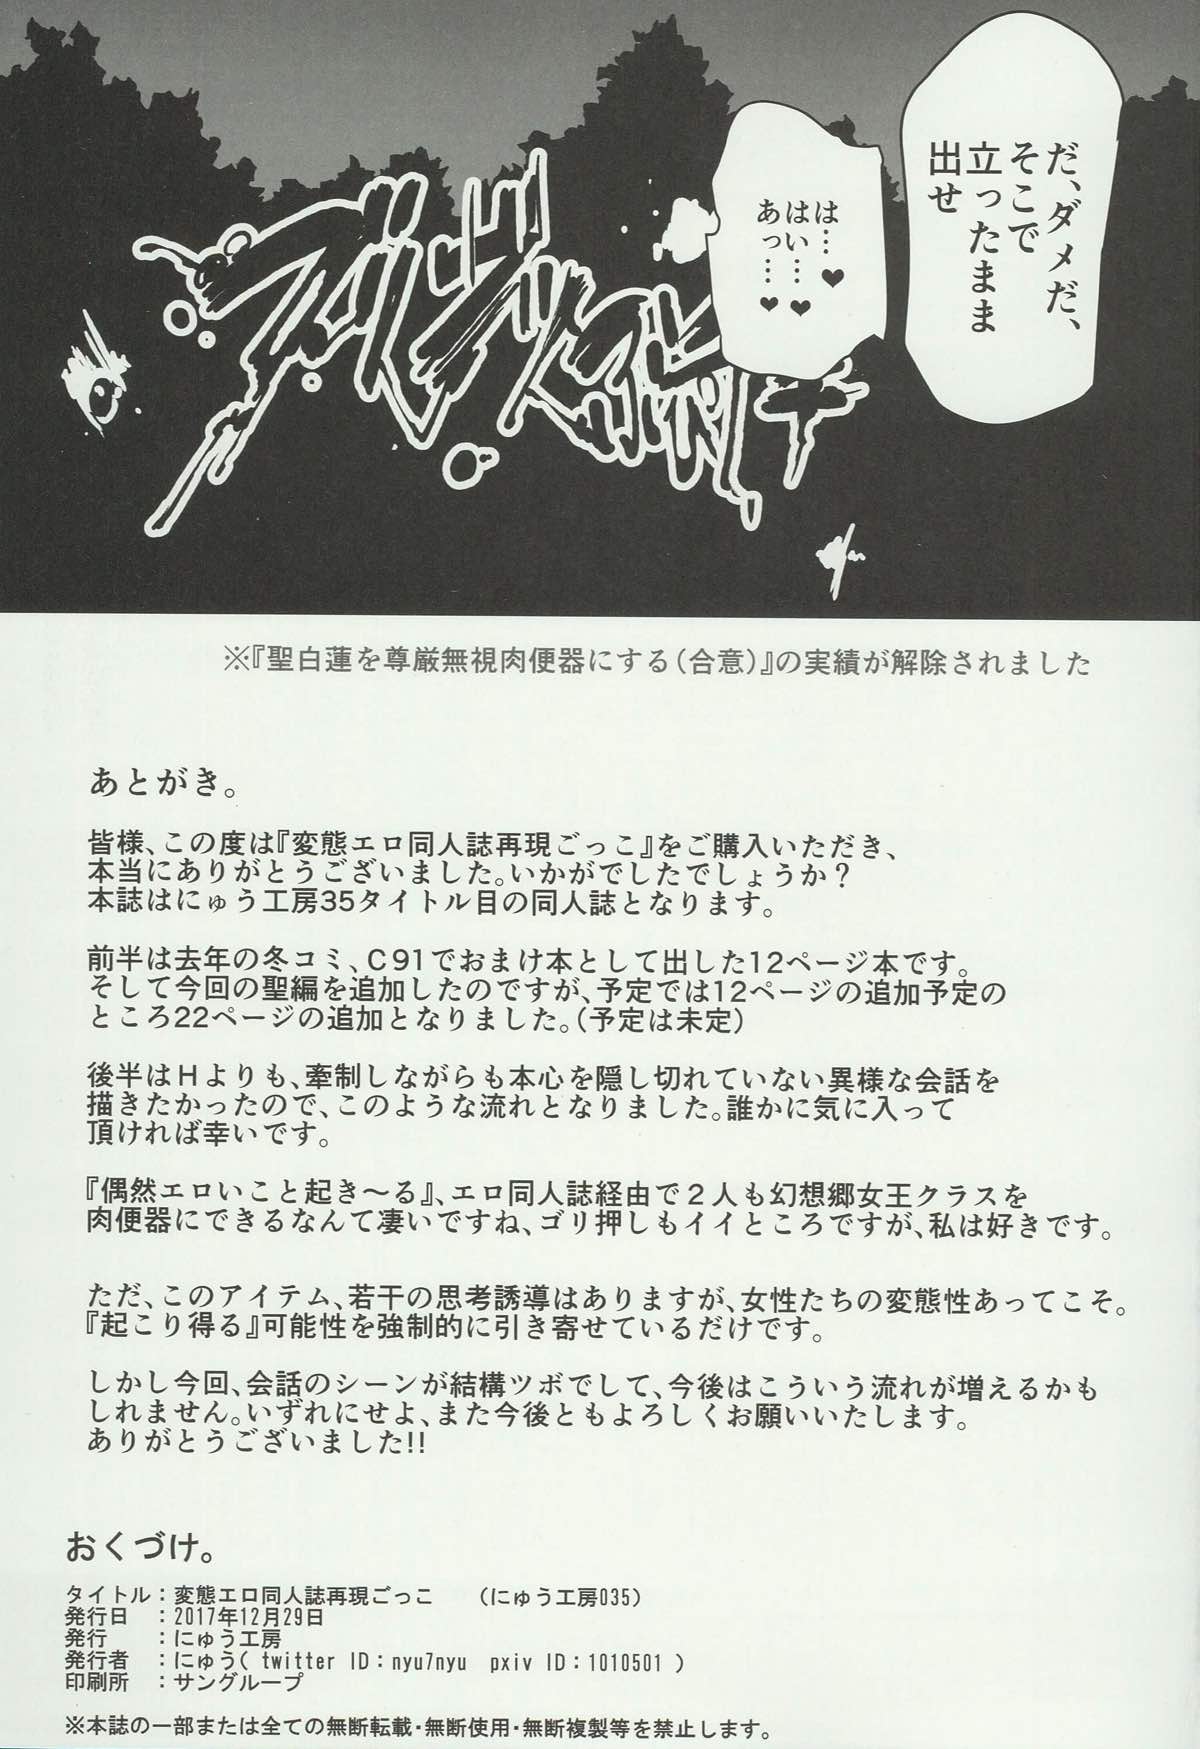 だ、ダメだ、
そこで
立ったまま
出せ
は…♥
はい…♥
あっ…♥
※『聖白蓮を尊厳無視肉便器にする(合意)』の実績が解除されました
あとがき。
皆様、この度は『変態エロ同人誌再現ごっこ』をご購入いただき、
本当にありがとうございました。いかがでしたでしょうか？
本誌はにゅう工房35タイトル目の同人誌となります。
前半は去年の冬コミ、C91でおまけ本として出した12ページ本です。
そして今回の聖編を追加したのですが、予定では12ページの追加予定の
ところ22ページの追加となりました。(予定は未定)
後半はHよりも、牽制しながらも本心を隠し切れていない異様な会話を
描きたかったので、このような流れとなりました。誰かに気に入って
頂ければ幸いです。
『偶然エロいこと起き～る』、エロ同人誌経由で２人も幻想郷女王クラスを
肉便器にできるなんて凄いですね、ゴリ押しもイイところですが、私は好きです。
ただ、このアイテム、若干の思考誘導はありますが、女性たちの変態性あってこそ。
『起こり得る』可能性を強制的に引き寄せているだけです。
しかし今回、会話のシーンが結構ツボでして、今後はこういう流れが増えるかも
しれません。いずれにせよ、また今後ともよろしくお願いいたします。
ありがとうございました!!
おくづけ。
タイトル：変態エロ同人誌再現ごっこ　（にゅう工房035）
発行日　：2017年12月29日
発行　　：にゅう工房
発行者　：にゅう( twitter ID：nyu7nyu　pxiv ID：1010501 )
印刷所　：サングループ
※本誌の一部または全ての無断転載・無断使用・無断複製等を禁止します。